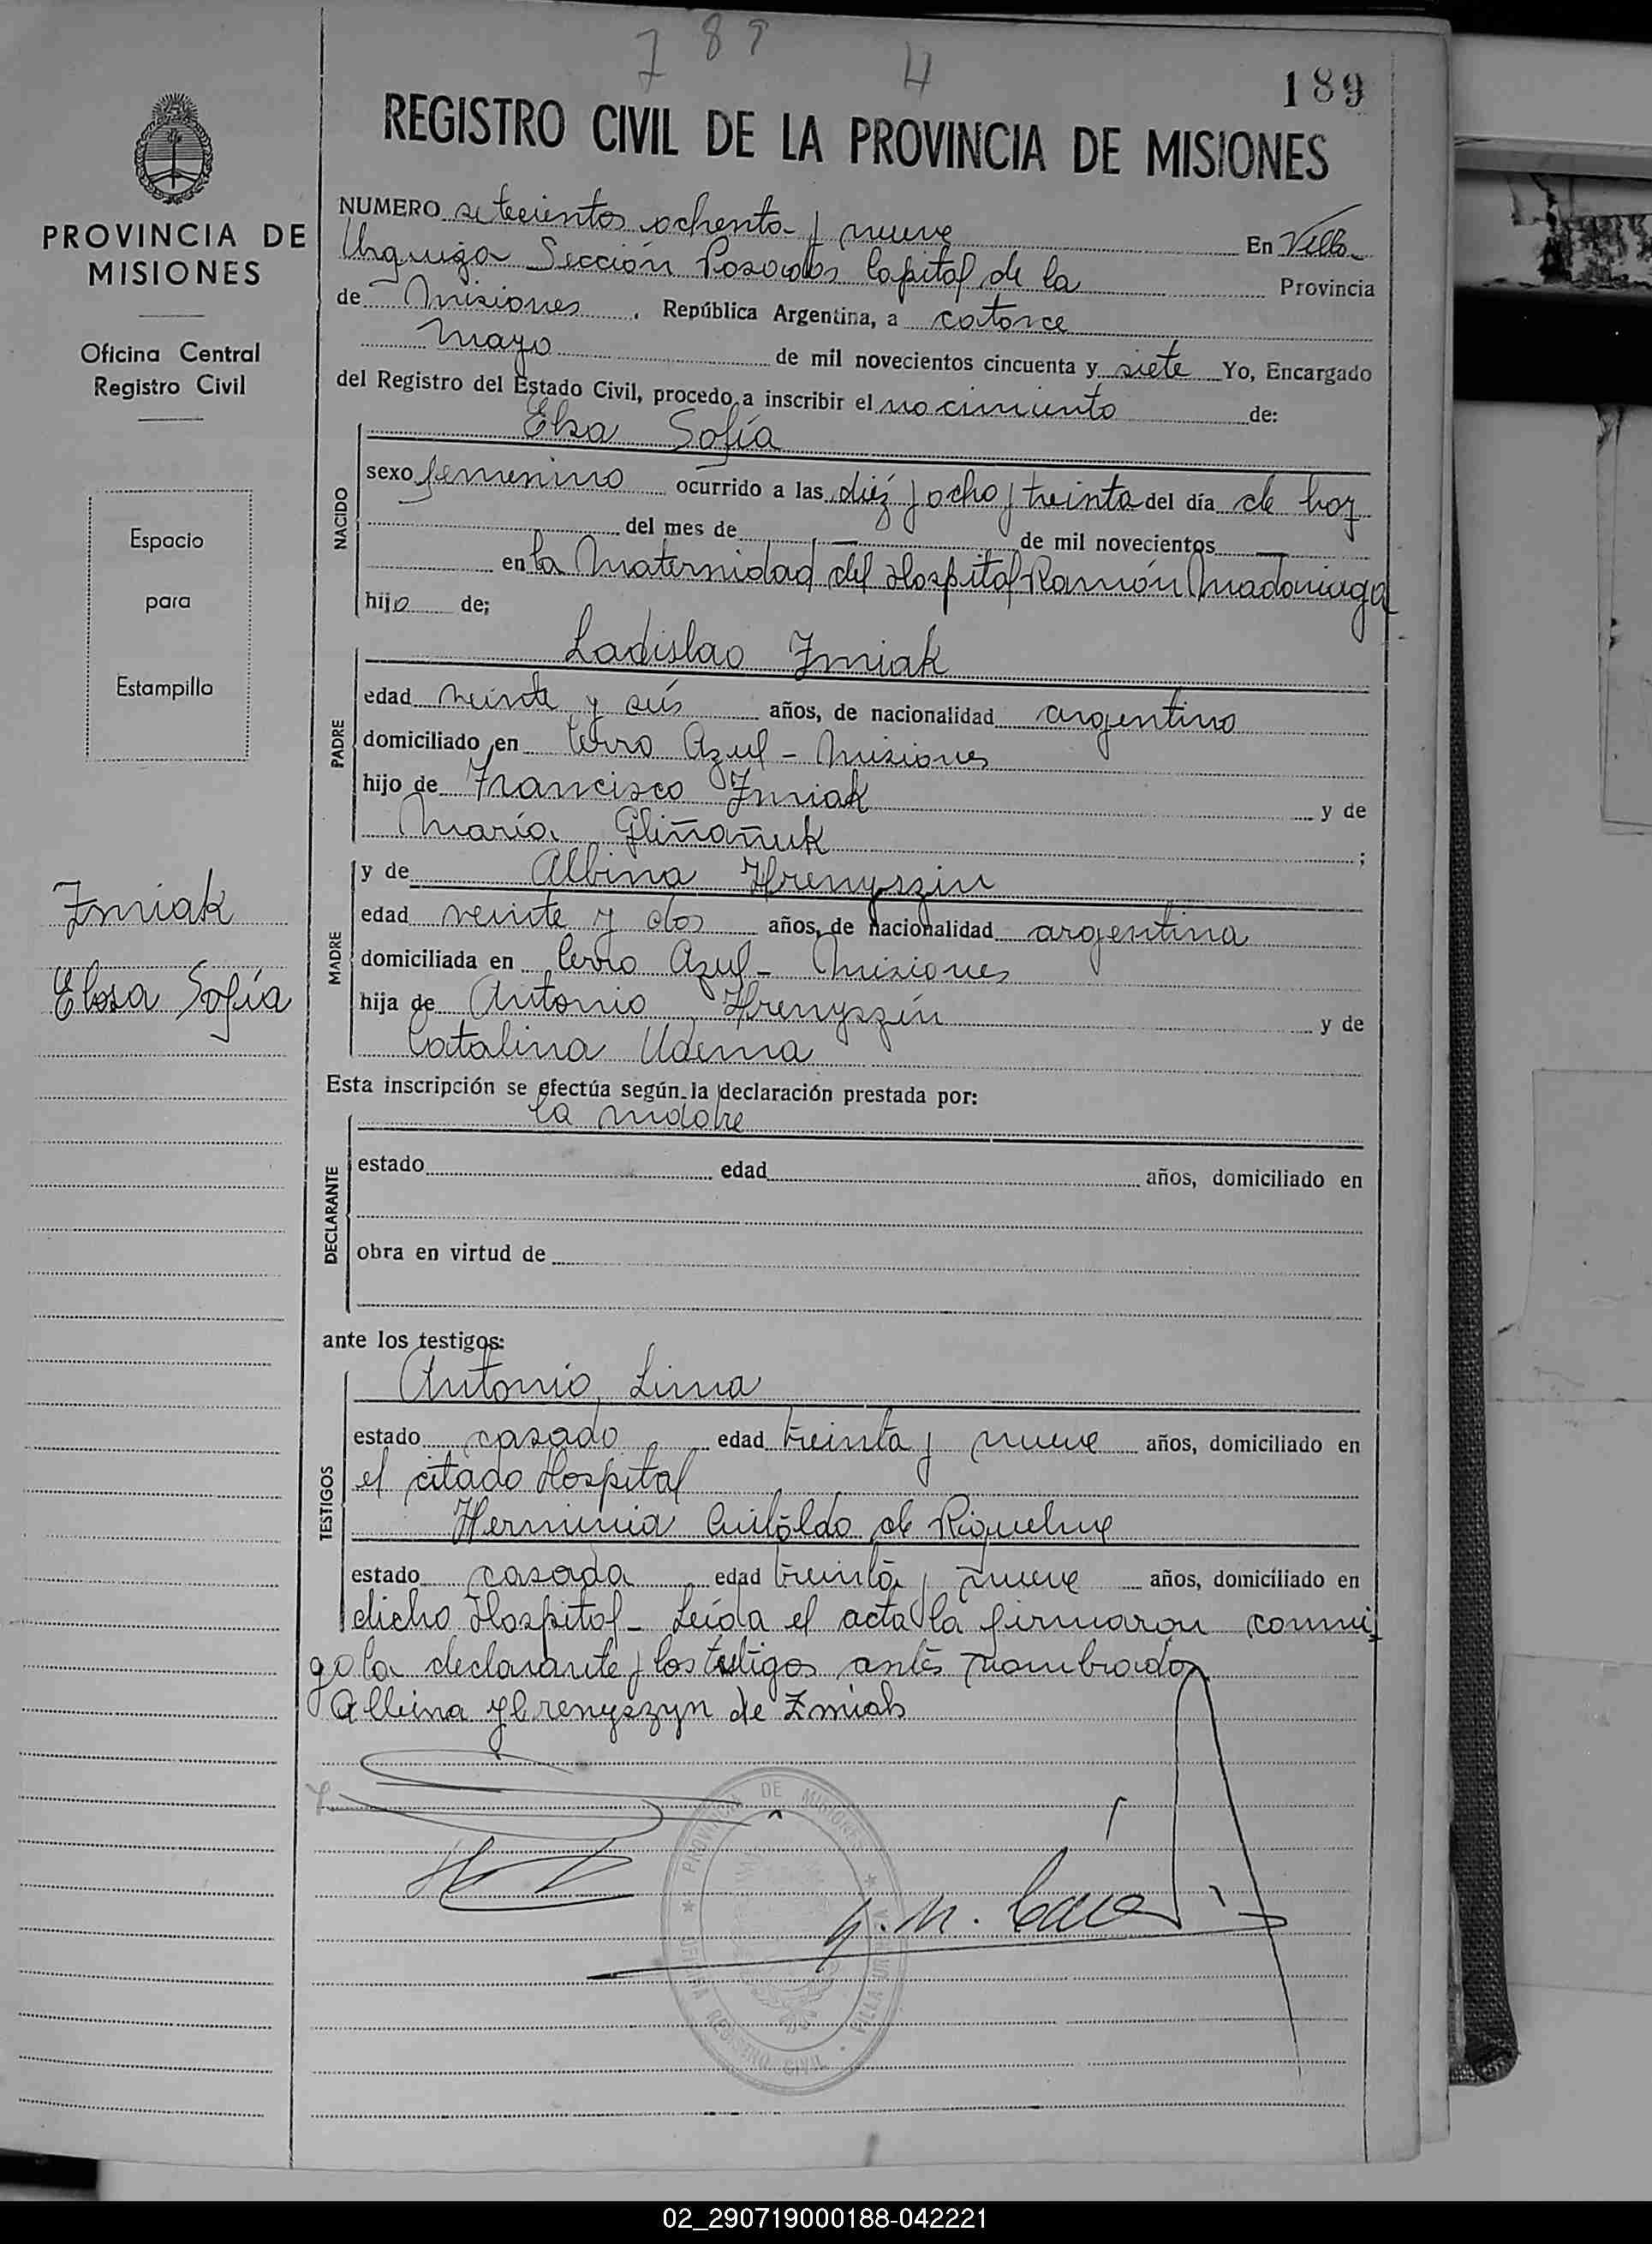 789 4
189
REGISTRO CIVIL DE LA PROVINCIA DE MISIONES
PROVINCIA DE
MISIONES
Oficina Central
Registro Civil
Espacio
para
Estampilla
Zmiak
Elsa Sofía
NUMERO setecientos ochenta y nueve En Villa
Urquiza Sección Posadas Capital de la Provincia
de Misiones, República Argentina, a catorce
Mayo de mil novecientos cincuenta y siete Yo, Encargado
del Registro del Estado Civil, procedo a inscribir el nacimiento de:
Elsa Sofía
NACIDO
sexo femenino ocurrido a las diéz y ocho y treinta del día de hoy
del mes de — de mil novecientos —
en la Maternidad del Hospital Ramón Madariaga
hijo de;
Ladislao Zmiak
PADRE
edad veinte y seis años, de nacionalidad argentino
domiciliado en Cerro Azul - Misiones
hijo de Francisco Zmiak y de
María Gliñañuk ;
y de Albina Hrenyszin
MADRE
edad veinte y dos años, de nacionalidad argentina
domiciliada en Cerro Azul - Misiones
hija de Antonio Hrenyszin y de
Catalina Udema
Esta inscripción se efectúa según la declaración prestada por:
la madre
DECLARANTE
estado edad años, domiciliado en
obra en virtud de
ante los testigos:
Antonio Lima
TESTIGOS
estado casado edad treinta y nueve años, domiciliado en
el citado Hospital
Herminia de Riquelme
estado casada edad treinta y nueve años, domiciliado en
dicho Hospital - Leída el acta la firmaron conmi
go la declarante y los testigos antes nombrados
Albina Hrenyszyn de Zmiak
PROVINCIA DE MISIONES
REGISTRO CIVIL
02_290719000188-042221